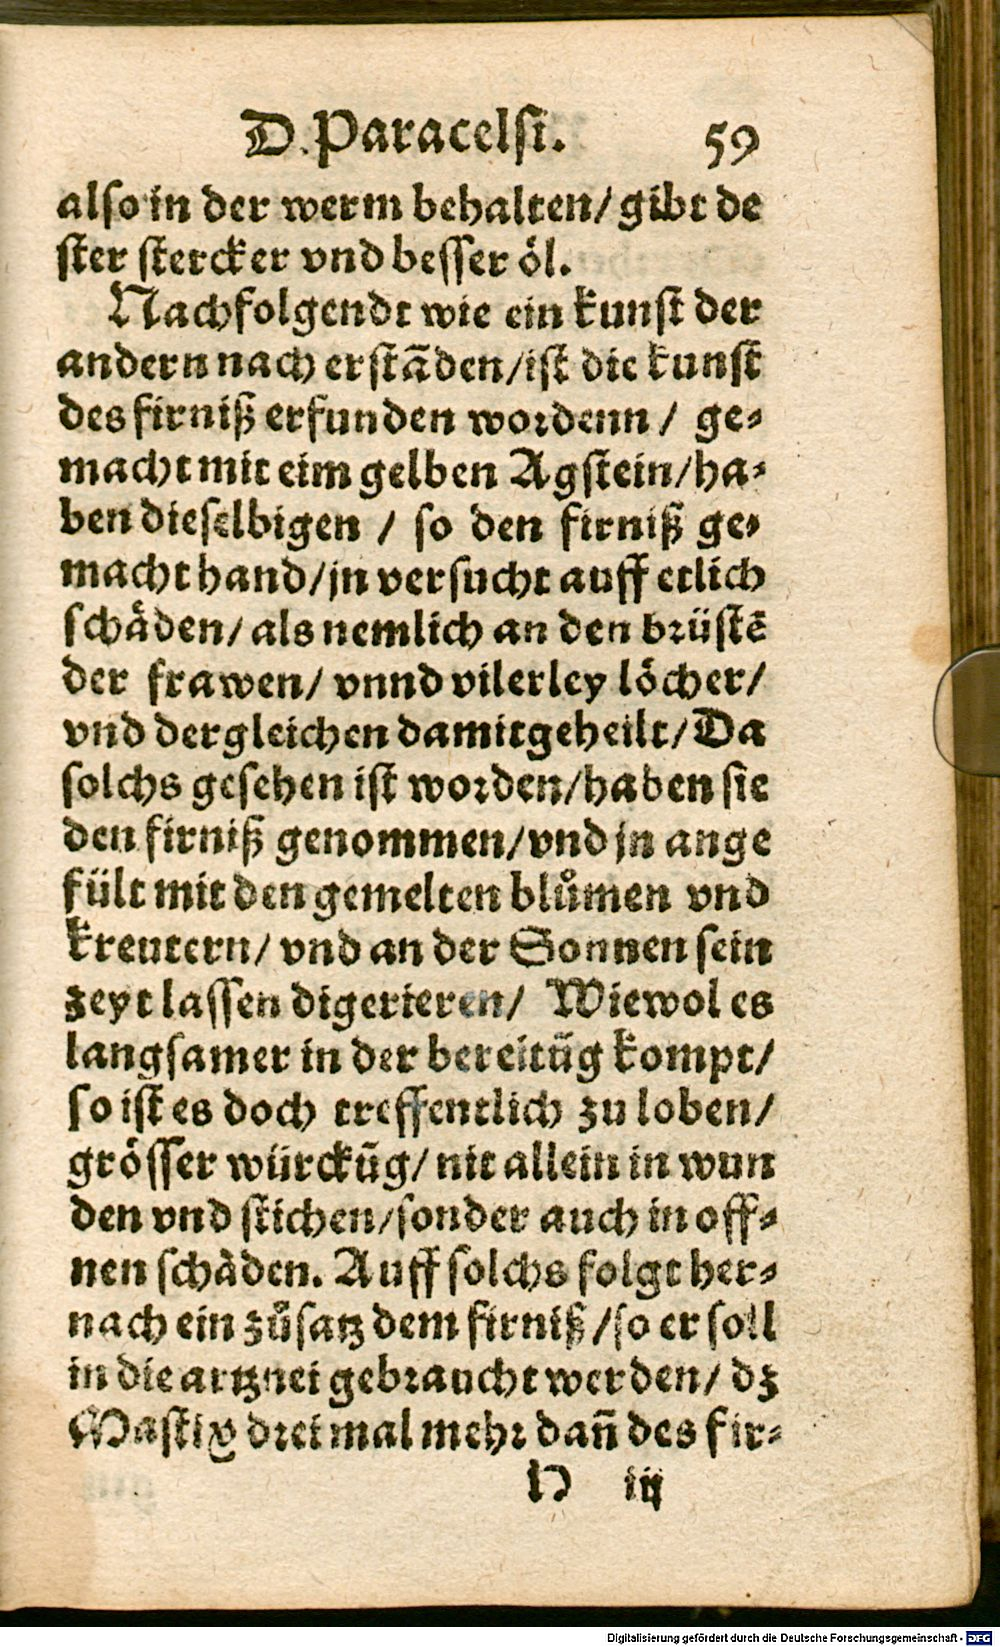 D. Paracelsi. 59
also in der werm behalten/ gibt de
ster stercker vnd besser öl.
Nachfolgendt wie ein kunst der
andern nach erstãden/ist die kunst
des firniß erfunden wordenn / ge⸗
macht mit eim gelben Agstein/ha⸗
ben dieselbigen / so den firniß ge⸗
macht hand/jn versucht auff etlich
schäden/ als nemlich an den brüstẽ
der frawen/ vnnd vilerley löcher/
vnd dergleichen damit geheilt/ Da
solchs gesehen ist worden/haben sie
den firniß genommen/vnd jn ange
fült mit den gemelten blůmen vnd
kreutern/ vnd an der Sonnen sein
zeyt lassen digerieren/ Wiewol es
langsamer in der bereitũg kompt/
so ist es doch treffentlich zu loben/
grösser würckũg/ nit allein in wun
den vnd stichen/sonder auch in off⸗
nen schäden. Auff solchs folgt her⸗
nach ein zůsatz dem firniß/so er soll
in die artznei gebraucht werden/ dz
Mastix drei mal mehr dañ des fir⸗
H iij
Digitalisierung gefördert durch die Deutsche Forschungsgemeinschaft - DFG